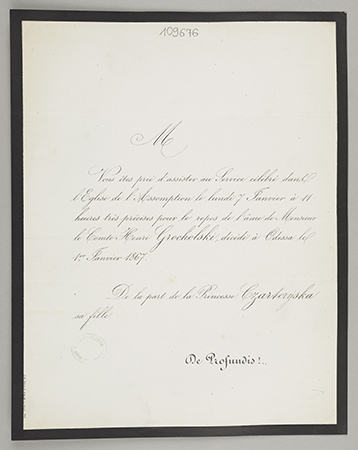 109676
M
Vous êtes prié d'assister au Service célébré dans
l'Eglise de l'Assomption le lundi 7 Janvier à 11
heures très précises pour le repos de l'âme de Monsieur
le Comte Henri Grocholski, décédé à Odessa le
1er Janvier 1867.
De la part de la Princesse Czartoryska
sa fille
De Profundis!..